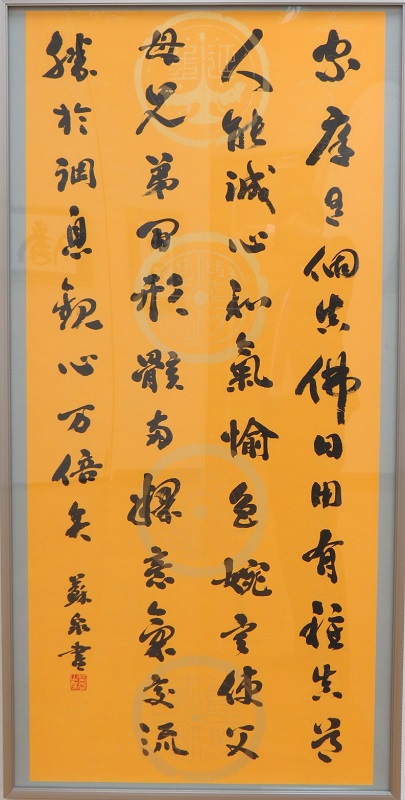 家庭有個真佛日用有種真道
人能誠心和氣愉色婉言使父
母兄弟間形骸兩釋意氣交流
勝於調息觀心万倍矣
蘇泉書